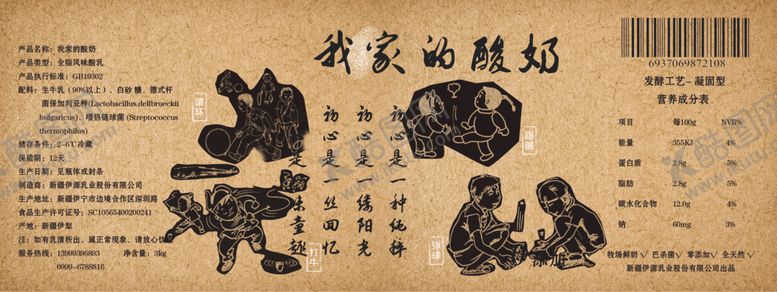 产品名称：我家的酸奶
产品类型：全脂风味酸乳
产品执行标准：GB19302
配料：生牛乳（90%以上）、白砂糖、德式杆
菌保加利亚种(Lactobacillus.dellbrueckii
bulgaricus)、嗜热链球菌 (Streptococcus
thermophilus)
储存条件：2-6℃冷藏
保质期：12天
生产日期：见瓶体或封条
制造商：新疆伊源乳业股份有限公司
生产地址：新疆伊宁市边境合作区深圳路
食品生产许可证号：SC10565400200241
产地：新疆伊犁
注：如有乳清析出、属正常现象、请放心饮用
服务热线：13999396893 净含量：3kg
0999-6788816
我家的酸奶
滚环
打牛
弹球
初心是一种纯粹
初心是一缕阳光
初心是一丝回忆
是 味童趣
6937069872108
发酵工艺- 凝固型
营养成分表
项目 每100g NVR%
能量 355KJ 4%
蛋白质 2.8g 5%
脂肪 2.8g 5%
碳水化合物 12.0g 4%
钠 60mg 3%
牧场鲜奶√ 巴杀菌√ 零添加√ 全天然√
新疆伊源乳业股份有限公司出品